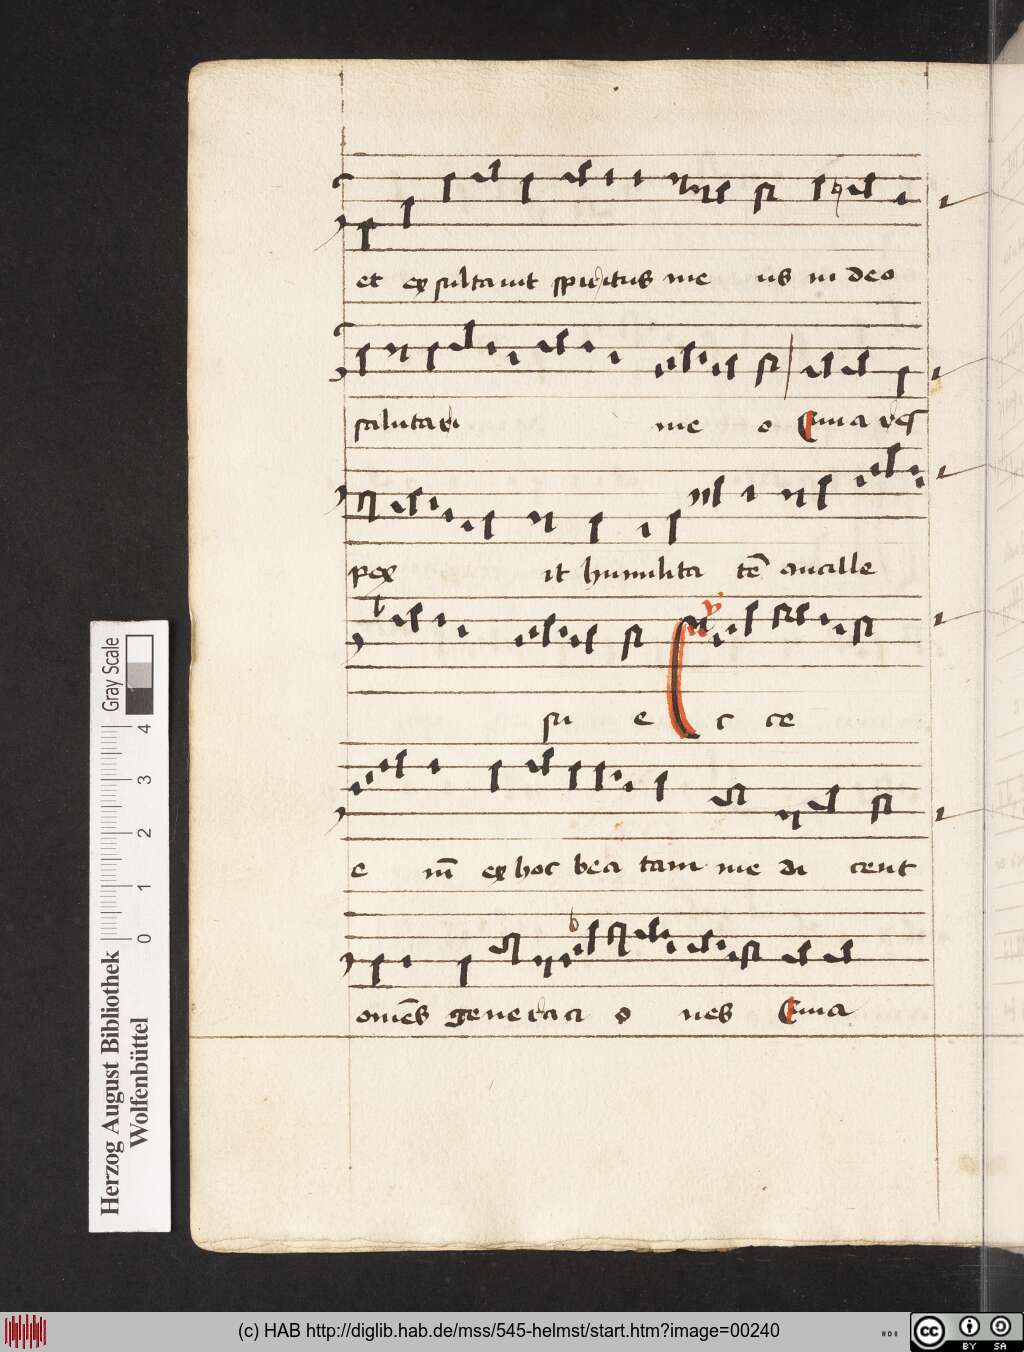 et exsultauit spiritus me us in deo
salutari me o Quia res
pex it humilita tē ancille
su e ℣ E c ce
e nī ex hoc bea tam me di cent
omēs generaci o nes Quia
Gray Scale
0 1 2 3 4
Herzog August Bibliothek
Wolfenbüttel
(c) HAB http://diglib.hab.de/mss/545-helmst/start.htm?image=00240
cc BY SA